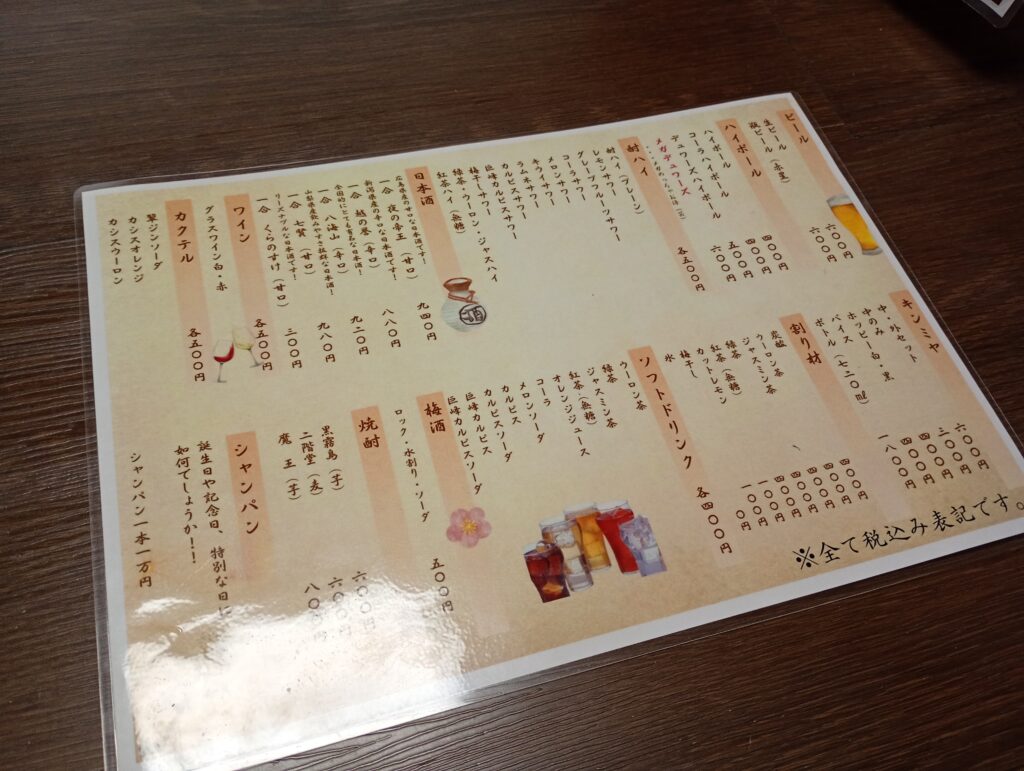 ビール
生ビール 六〇〇円
瓶ビール(赤星) 六〇〇円
ハイボール
ハイボール 四〇〇円
コーラハイボール 四〇〇円
デュワーズハイボール 五〇〇円
メガデュワーズ 六〇〇円
酎ハイ 各五〇〇円
酎ハイ(プレーン)
レモンサワー
グレープフルーツサワー
コーラサワー
メロンサワー
キウイサワー
ラムネサワー
カルピスサワー
巨峰カルピスサワー
梅干しサワー
緑茶・ウーロン・ジャスハイ
紅茶ハイ(無糖)
日本酒
広島県産の甘口な日本酒です!
一合 夜の帝王 九四〇円
新潟県産の辛口な日本酒です!
一合 越の誉(辛口) 八八〇円
全国的にとても有名な日本酒!
一合 八海山(辛口) 九二〇円
山梨県産飲みやすさ抜群な日本酒!
一合 七賢(甘口) 九八〇円
リーズナブルな日本酒です!
一合 くらのすけ(甘口) 三〇〇円
ワイン 各五〇〇円
グラスワイン白・赤
カクテル 各五〇〇円
翠ジンソーダ
カシスオレンジ
カシスウーロン
キンミヤ
中、外セット 六〇〇円
中のみ 三〇〇円
ホッピー白・黒 四〇〇円
バイス 四〇〇円
ボトル(七二〇ml) 一八〇〇円
割り材
炭酸 四〇〇円
ウーロン茶 四〇〇円
ジャスミン茶 四〇〇円
緑茶 四〇〇円
紅茶(無糖) 四〇〇円
カットレモン
梅干し 一〇〇円
氷 一〇〇円
ソフトドリンク 各四〇〇円
ウーロン茶
緑茶
ジャスミン茶
紅茶(無糖)
オレンジジュース
コーラ
メロンソーダ
カルピス
カルピスソーダ
巨峰カルピス
巨峰カルピスソーダ
梅酒 五〇〇円
ロック・水割り・ソーダ
焼酎
黒霧島(芋) 六〇〇円
二階堂(麦) 六〇〇円
魔王(芋) 八〇〇円
シャンパン
誕生日や記念日、特別な日に
如何でしょうか!!
シャンパン一本一万円
※全て税込み表記です。
酒